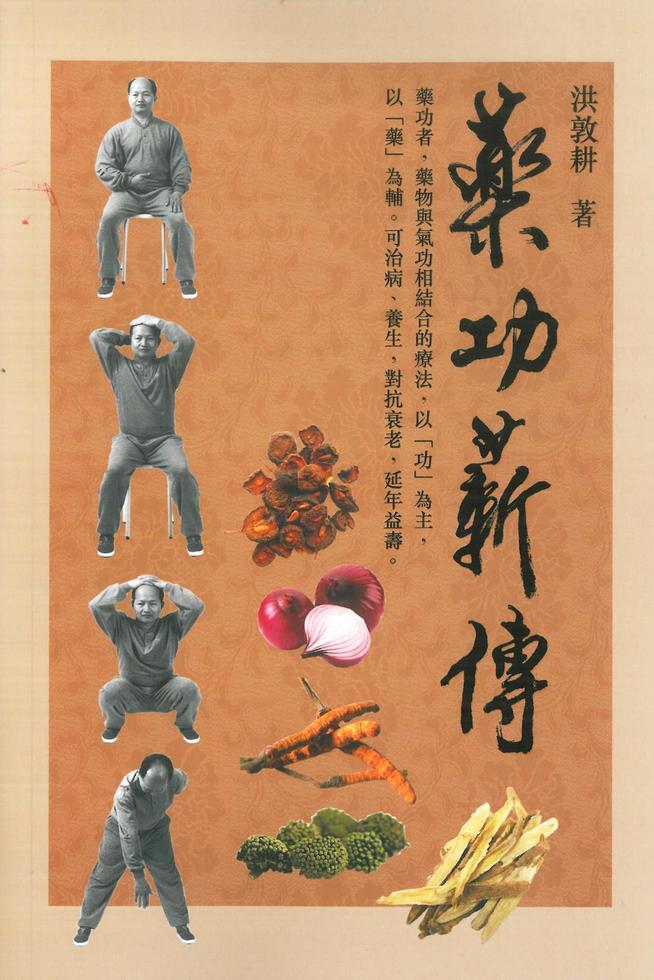 洪敦耕 著
藥功薪傳
藥功者，藥物與氣功相結合的療法，以「功」為主，
以「藥」為輔。可治病、養生，對抗衰老，延年益壽。